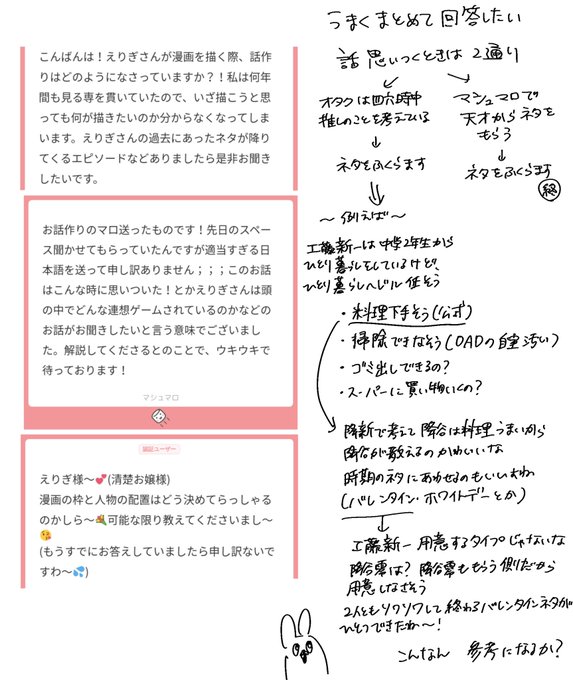 こんばんは！えりぎさんが漫画を描く際、話作
りはどのようになさっていますか？！私は何年
間も見る専を貫いていたので、いざ描こうと思
っても何が描きたいのか分からなくなってしま
います。えりぎさんの過去にあったネタが降り
てくるエピソードなどありましたら是非お聞き
したいです。
お話作りのマロ送ったものです！先日のスペー
ス聞かせてもらっていたんですが適当すぎる日
本語を送って申し訳ありません；；；このお話
はこんな時に思いついた！とかえりぎさんは頭
の中でどんな連想ゲームされているのかなどの
お話がお聞きしたいと言う意味でございまし
た。解説してくださるとのことで、ウキウキで
待っております！
マシュマロ
認証ユーザー
えりぎ様〜💕(清楚お嬢様)
漫画の枠と人物の配置はどう決めてらっしゃる
のかしら〜💐可能な限り教えてくださいまし〜
😘
(もうすでにお答えしていましたら申し訳ないで
すわ〜💦)
うまくまとめて回答したい
話思いつくときは2通り
オタクは四六時中
推しのことを考えている
↓
ネタをふくらます
マシュマロで
天才からネタを
もらう
↓
ネタをふくらます
終
〜例えば〜
工藤新一は中学2年生から
ひとり暮らしをしているけど、
ひとり暮らしレベル低そう
・料理下手そう(公式)
・掃除できなそう(OADの自室汚い)
・ゴミ出しできるの？
・スーパーに買い物いくの？
降新で考えて降谷は料理うまいから
降谷が教えるのかわいいな
時期のネタにあわせるのもいいよね
(バレンタイン・ホワイトデーとか)
↓
工藤新一用意するタイプじゃないな
降谷零は？降谷零ももらう側だから
用意しなさそう
2人ともソワソワして終わるバレンタインネタが
ひとつできたわ〜！
こんなん 参考になるか？